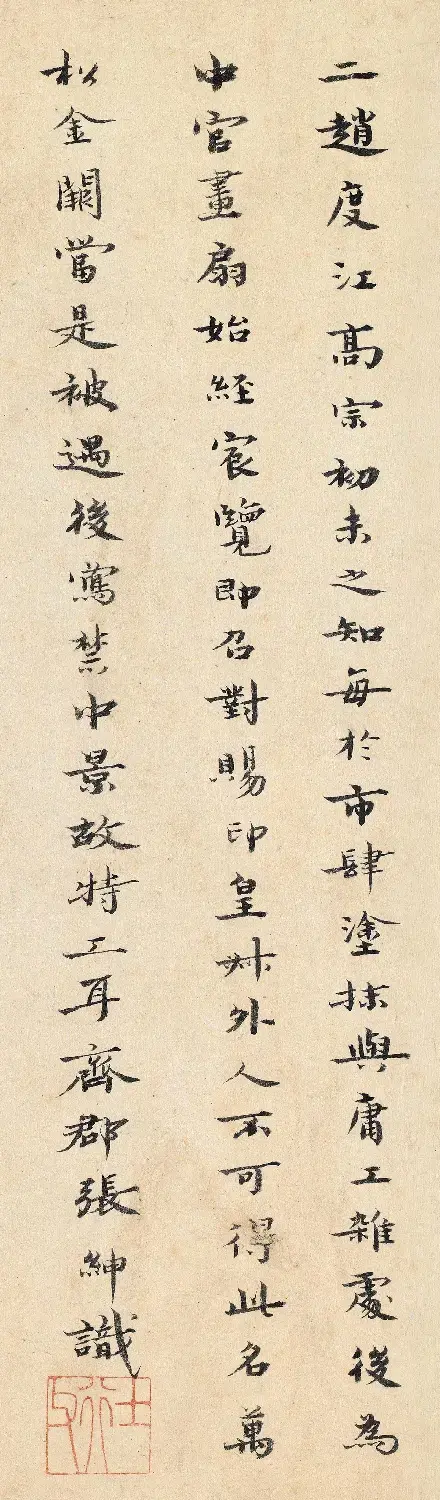 二趙度江髙宗初未之知每於市肆塗抹與庸工雜處後為
中官畫扇始經宸覽即召對賜印皇叔外人不可得此名萬
松金闕當是被遇後寫禁中景故特工耳齊郡張紳識